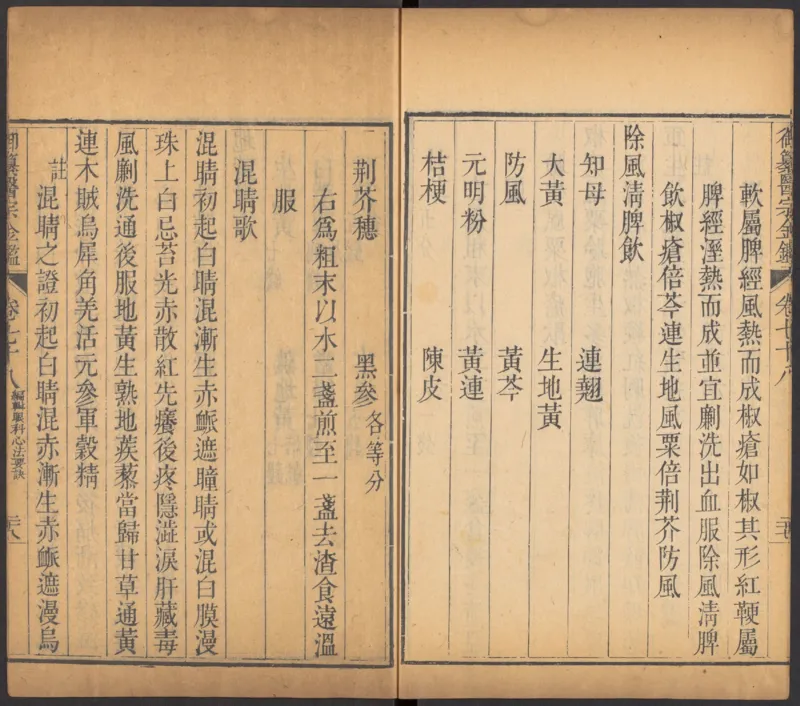 御纂醫宗金鑑 卷七十八
軟屬脾經風熱而成椒瘡如椒其形紅鞕屬
脾經溼熱而成並宜劆洗出血服除風清脾
飲椒瘡倍芩連生地風粟倍荆芥防風
除風清脾飲
知母 連翹
大黃 生地黃
防風 黃芩
元明粉 黃連
桔梗 陳皮
荆芥穗 黑參各等分
右爲粗末以水二盞煎至一盞去渣食遠溫
服
混睛歌
混睛初起白睛混漸生赤䘑遮瞳睛或混白膜漫
珠上白忌苔光赤散紅先癢後疼隱澁淚肝藏毒
風劆洗通後服地黃生熟地蒺藜當歸甘草通黃
連木賊烏犀角羗活元參軍穀精
註混睛之證初起白睛混赤漸生赤䘑遮漫烏
御纂醫宗金鑑 卷七十八 編輯眼科心法要訣 二八